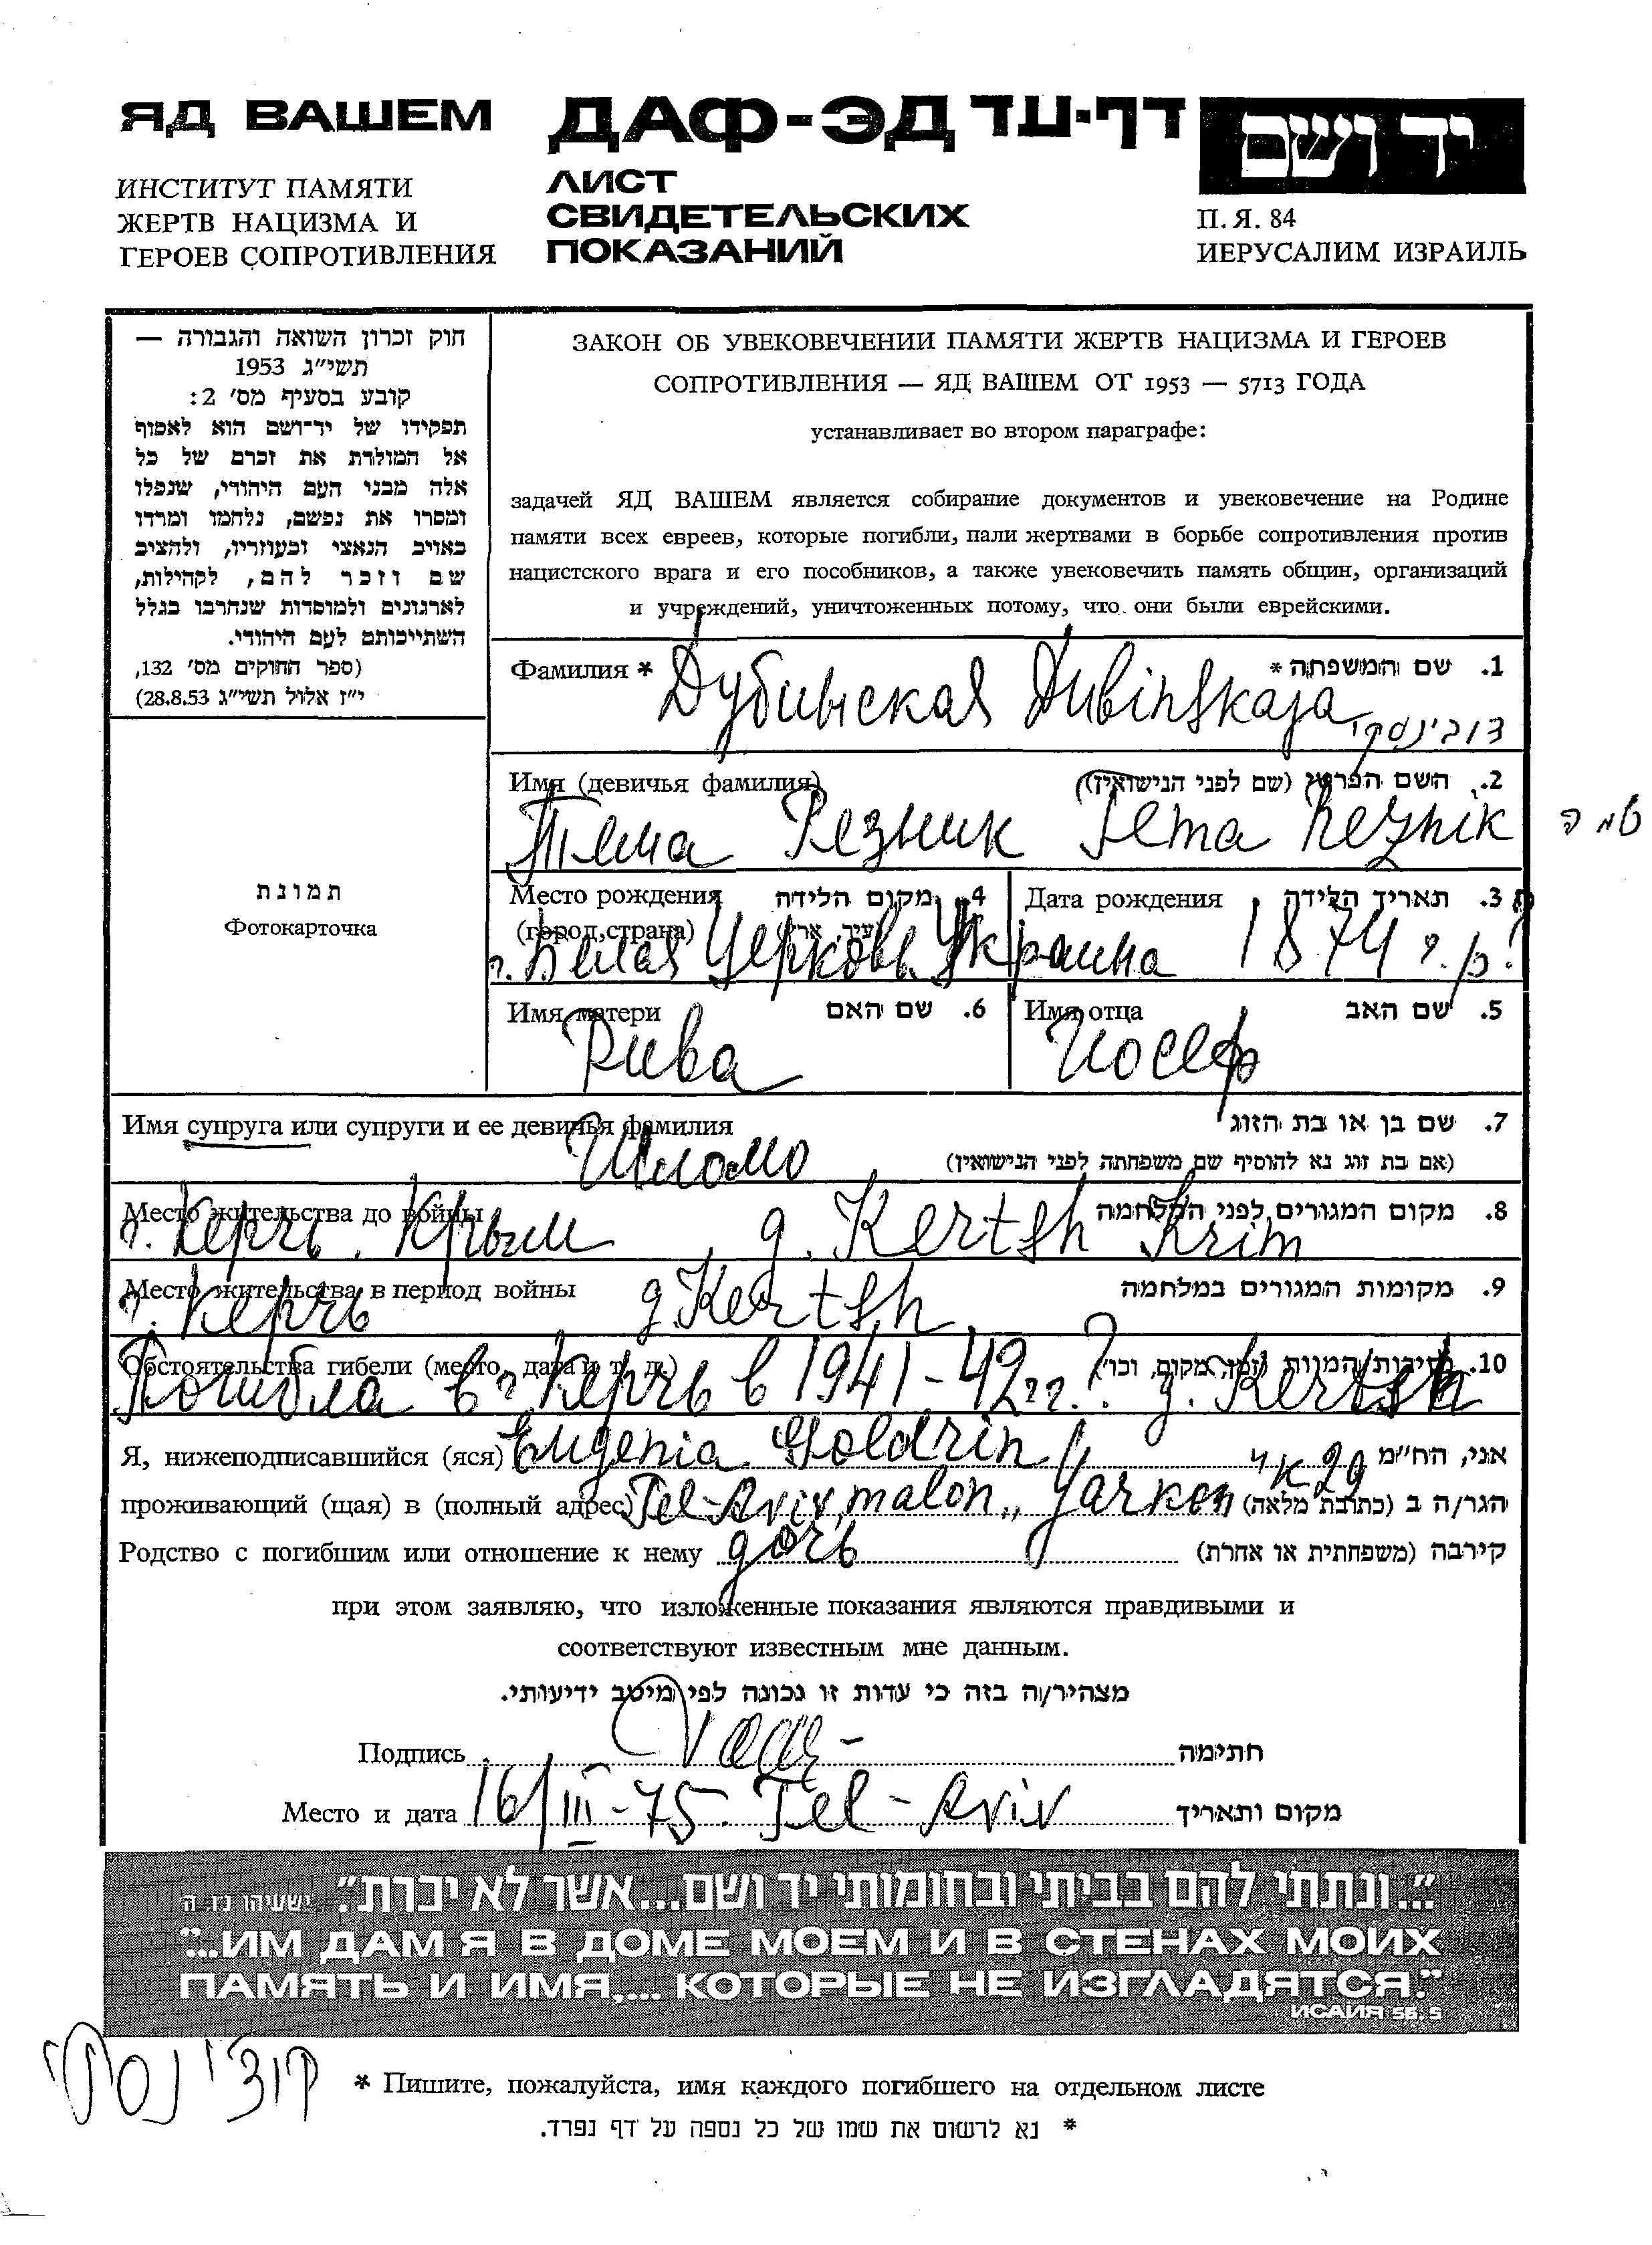 ЯД ВАШЕМ
ИНСТИТУТ ПАМЯТИ
ЖЕРТВ НАЦИЗМА И
ГЕРОЕВ СОПРОТИВЛЕНИЯ
ДАФ-ЭД דף-עד
ЛИСТ
СВИДЕТЕЛЬСКИХ
ПОКАЗАНИЙ
יד ושם
П. Я. 84
ИЕРУСАЛИМ ИЗРАИЛЬ
חוק זכרון השואה והגבורה —
תשי״ג 1953
קובע בסעיף מס׳ 2:
תפקידו של יד־ושם הוא לאסוף
אל המולדת את זכרם של כל
אלה מבני העם היהודי, שנפלו
ומסרו את נפשם, נלחמו ומרדו
באויב הנאצי ובעוזריו, ולהציב
שם וזכר להם, לקהילות,
לארגונים ולמוסדות שנחרבו בגלל
השתייכותם לעם היהודי.
(ספר החוקים מס׳ 132,
י״ז אלול תשי״ג 28.8.53)
ЗАКОН ОБ УВЕКОВЕЧЕНИИ ПАМЯТИ ЖЕРТВ НАЦИЗМА И ГЕРОЕВ
СОПРОТИВЛЕНИЯ — ЯД ВАШЕМ ОТ 1953 — 5713 ГОДА
устанавливает во втором параграфе:
задачей ЯД ВАШЕМ является собирание документов и увековечение на Родине
памяти всех евреев, которые погибли, пали жертвами в борьбе сопротивления против
нацистского врага и его пособников, а также увековечить память общин, организаций
и учреждений, уничтоженных потому, что они были еврейскими.
תמונת
Фотокарточка
Фамилия * 1. שם המשפחה *
Дубинская Dubinskaja דובינסקי
Имя (девичья фамилия) 2. השם הפרטי (שם לפני הנישואין)
Тема Резник Tema Reznik טמה
Место рождения 4. מקום הלידה
(город, страна)
г. Белая Церковь Украина
Дата рождения 3. תאריך הלידה
1874 г.р?
Имя матери 6. שם האם
Рива
Имя отца 5. שם האב
Иосеф
Имя супруга или супруги и ее девичья фамилия 7. שם בן או בת הזוג
Шломо (אם בת זוג נא להוסיף שם משפחתה לפני הנישואין)
Место жительства до войны 8. מקום המגורים לפני המלחמה
г. Керчь. Крым, g. Kertsh Krim
Место жительства в период войны 9. מקומות המגורים במלחמה
г. Керчь g. Kertsh
Обстоятельства гибели (место, дата и т. д.) 10. נסיבות המוות (זמן, מקום, וכו׳)
Погибла в г. Керчь в 1941-42 гг?. g. Kertsh
Я, нижеподписавшийся (яся) Eugenia Goldrin אני, הח״מ
проживающий (щая) в (полный адрес) Tel-Aviv, malon „Jarkon הגר/ה ב (כתובת מלאה)
Родство с погибшим или отношение к нему дочь קירבה (משפחתית או אחרת)
при этом заявляю, что изложенные показания являются правдивыми и
соответствуют известным мне данным.
מצהיר/ה בזה כי עדות זו נכונה לפי מיטב ידיעותי.
Подпись חתימה
Место и дата 16/III-75. Tel-Aviv מקום ותאריך
"...ונתתי להם בביתי ובחומותי יד ושם...אשר לא יכרת". ישעיהו נ״ו, ה
"...ИМ ДАМ Я В ДОМЕ МОЕМ И В СТЕНАХ МОИХ
ПАМЯТЬ И ИМЯ,... КОТОРЫЕ НЕ ИЗГЛАДЯТСЯ."
ИСАИЯ 56. 5
* Пишите, пожалуйста, имя каждого погибшего на отдельном листе
* נא לרשום את שמו של כל נספה על דף נפרד.